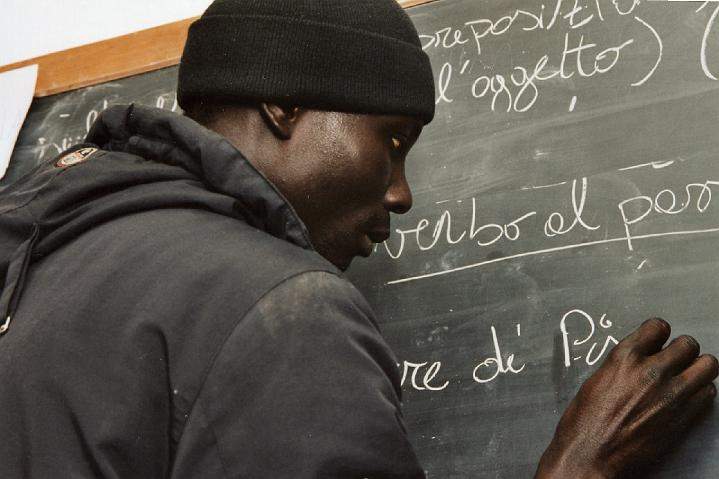 preposizio
l'oggetto)
verbo al par
re di Pi